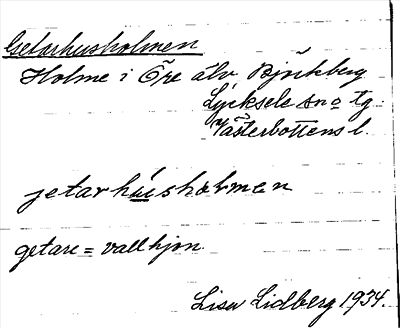 Getarhusholmen
Holme i Öre älv Björkberg
Lycksele sn o tg.
Västerbottens l.
jetarhusholmen
getare = vallhjon.
Lisa Lidberg 1934.